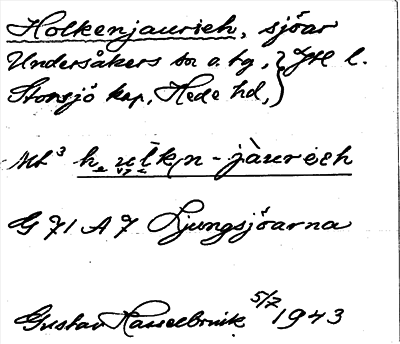 Holkenjaurieh, sjöar
Undersåkers sn o. tg, } Jtl l.
Storsjö kap, Hede hd,
Mt³ hulkn-jàurieh
G 71 A 7 Ljungsjöarna
Gustav Hasselbrink 5/7 1943